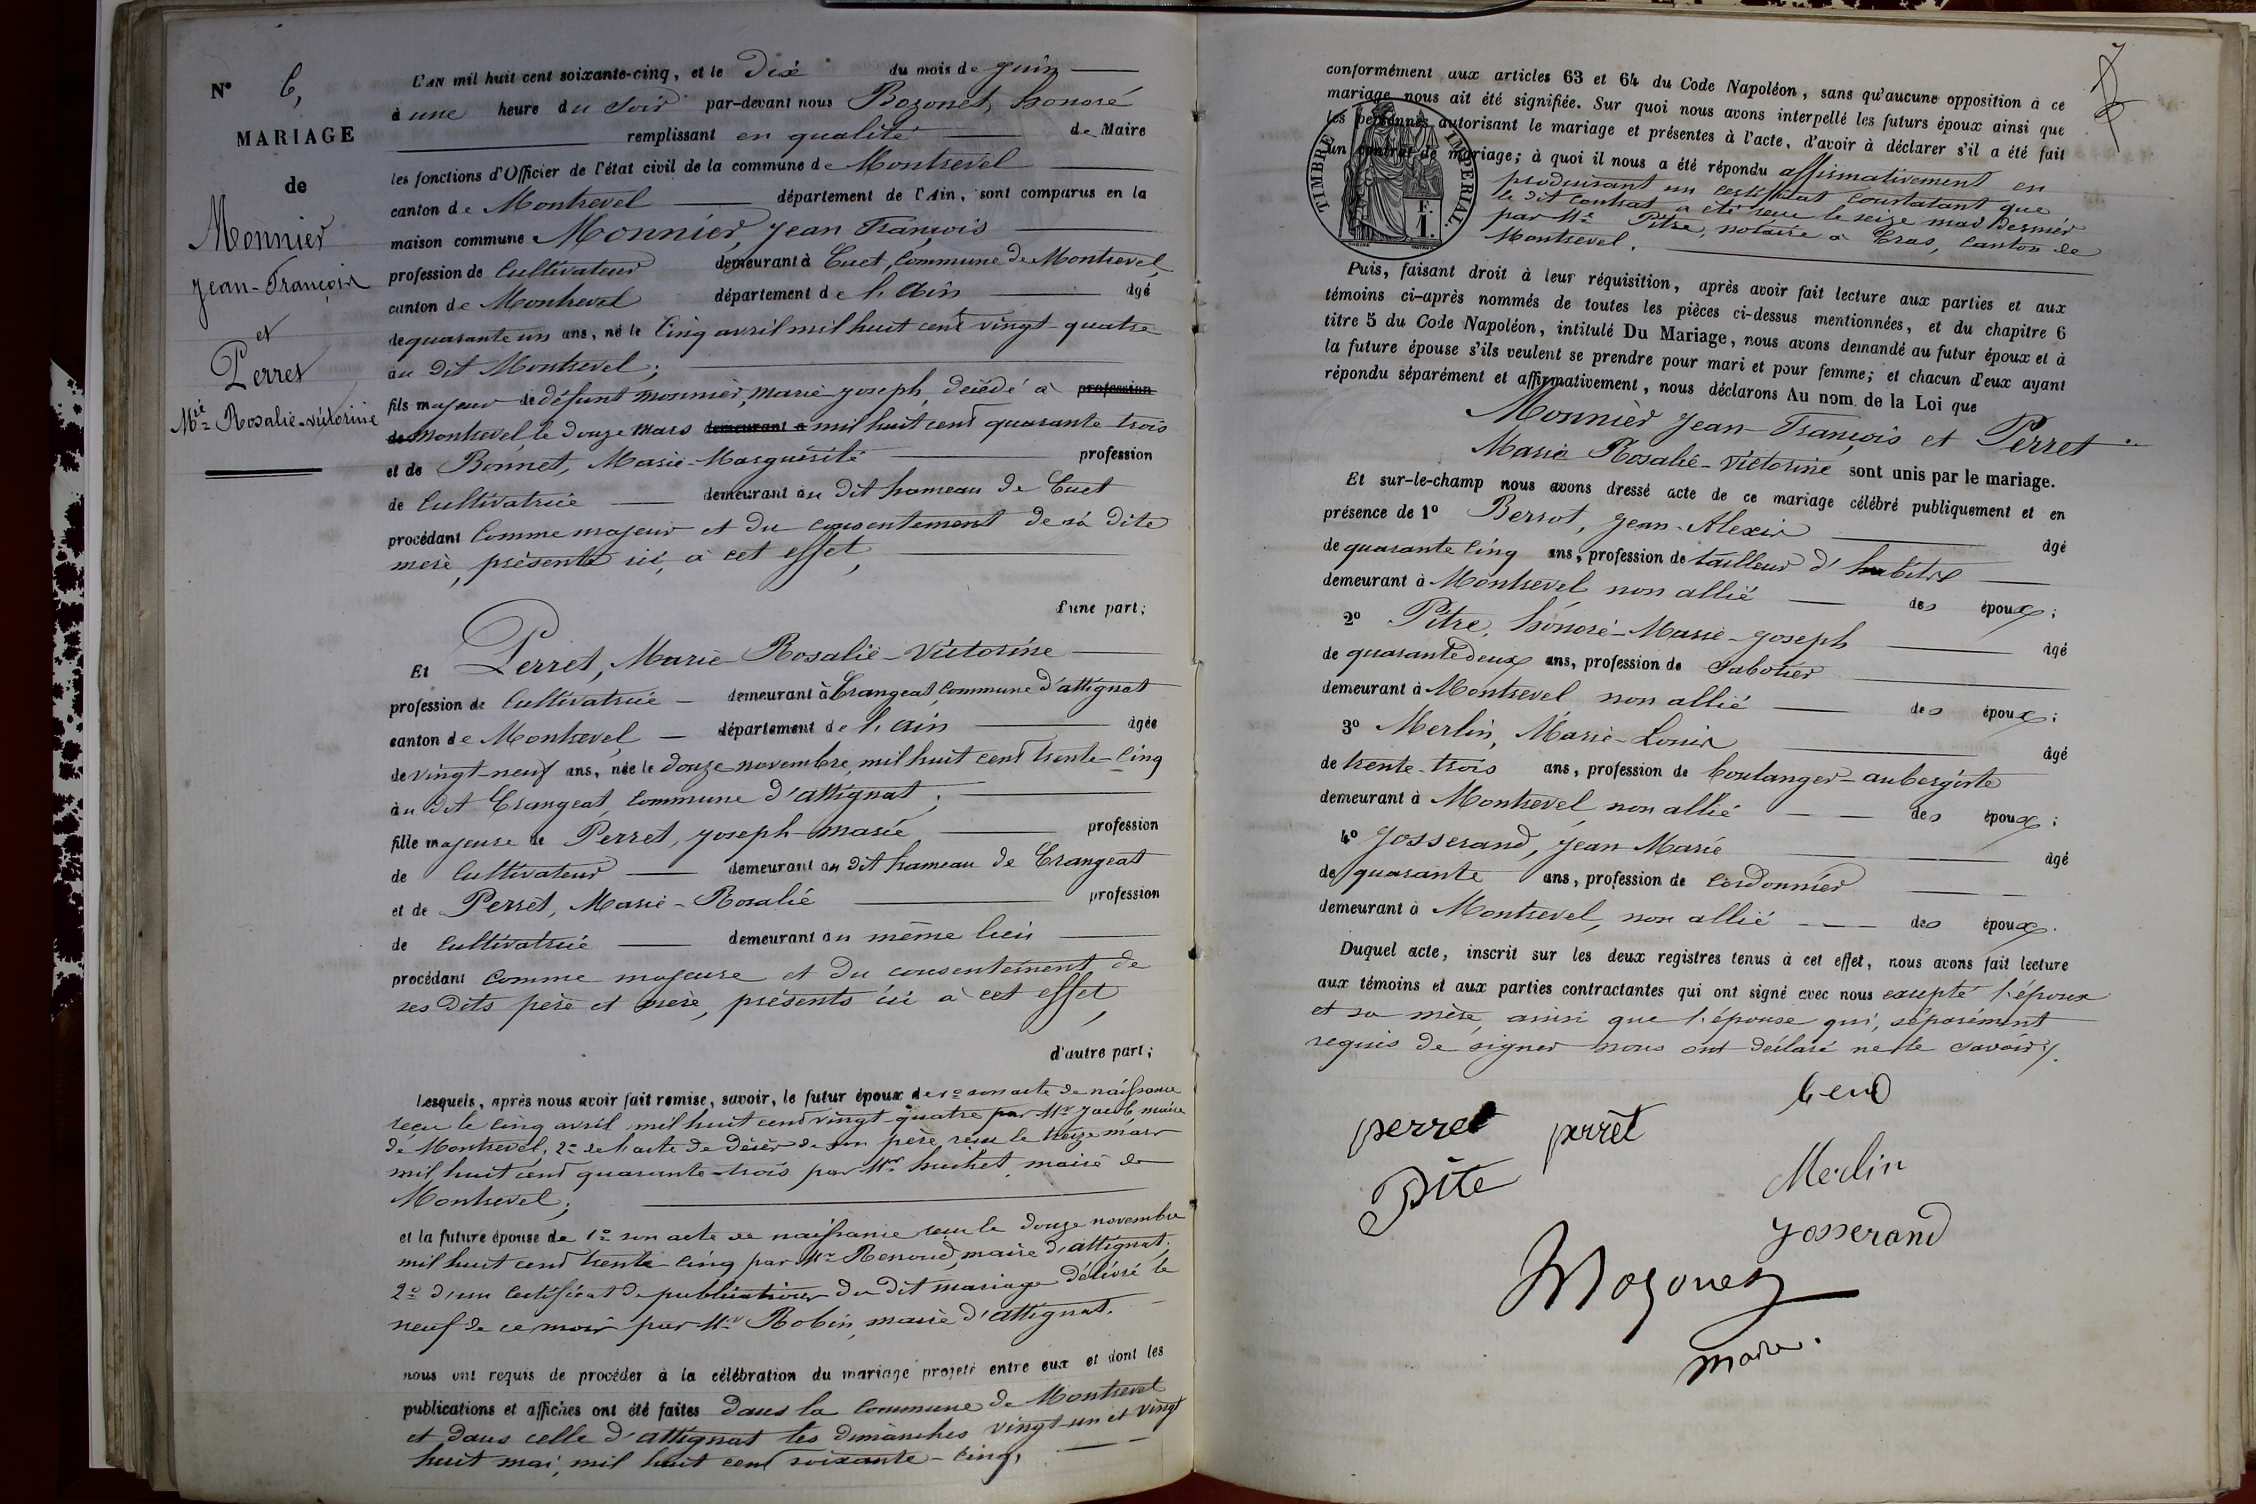 N° 6,
MARIAGE
de
Monnier
Jean-François
et
Perret
Mie Rosalie-Victorine
L'AN mil huit cent soixante-cinq, et le dix du mois de juin
à une heure du soir par-devant nous Bozonet, honoré
remplissant en qualité de Maire
les fonctions d'Officier de l'état civil de la commune de Montrevel
canton de Montrevel département de l'Ain, sont comparus en la
maison commune Monnier, Jean François
profession de Cultivateur demeurant à Cuet, commune de Montrevel,
canton de Montrevel département de l'Ain âgé
de quarante un ans, né le cinq avril mil huit cent vingt-quatre
au dit Montrevel;
fils majeur de défunt Monnier, Marie-Joseph, décédé à profession
de Montrevel, le douze mars demeurant à mil huit cent quarante-trois
et de Bonnet, Marie-Marguerite profession
de Cultivatrice demeurant au dit hameau de Cuet
procédant comme majeur et du consentement de sa dite
mère, présente ici, à cet effet,
d'une part;
Et Perret, Marie-Rosalie-Victorine
profession de Cultivatrice demeurant à Crangeat, commune d'attignat
canton de Montrevel département de l'ain âgée
de vingt-neuf ans, née le douze novembre, mil huit cent trente-cinq
au dit Crangeat, commune d'attignat;
fille majeure de Perret, Joseph-Marie profession
de Cultivateur demeurant au dit hameau de Crangeat
et de Perret, Marie-Rosalie profession
de Cultivatrice demeurant au même lieu
procédant comme majeure et du consentement de
ses dits père et mère, présents ici à cet effet,
d'autre part;
Lesquels, après nous avoir fait remise, savoir, le futur époux de 1° son acte de naissance
reçu le cinq avril mil huit cent vingt-quatre par Mr Jacob, maire
de Montrevel, 2° de l'acte de décès de son père, reçu le treize mars
mil huit cent quarante-trois par Mr huchet, maire de
Montrevel;
et la future épouse de 1° son acte de naissance reçu le douze novembre
mil huit cent trente cinq par Mr Renoud, maire d'attignat;
2° d'un certificat de publications du dit mariage délivré le
neuf de ce mois par Mr Robin, maire d'attignat.
nous ont requis de procéder à la célébration du mariage projeté entre eux et dont les
publications et affiches ont été faites dans la commune de Montrevel
et dans celle d'attignat les dimanches vingt-un et vingt
huit mai, mil huit cent soixante-cinq,
conformément aux articles 63 et 64 du Code Napoléon, sans qu'aucune opposition à ce
mariage nous ait été signifiée. Sur quoi nous avons interpellé les futurs époux ainsi que
les personnes autorisant le mariage et présentes à l'acte, d'avoir à déclarer s'il a été fait
un contrat de mariage; à quoi il nous a été répondu affirmativement en
TIMBRE IMPERIAL.
F.
1.
produisant un certificat constatant que
le dit contrat a été reçu le seize mai dernier
par Me Pitre, notaire à Cras, canton de
Montrevel.
Puis, faisant droit à leur réquisition, après avoir fait lecture aux parties et aux
témoins ci-après nommés de toutes les pièces ci-dessus mentionnées, et du chapitre 6
titre 5 du Code Napoléon, intitulé Du Mariage, nous avons demandé au futur époux et à
la future épouse s'ils veulent se prendre pour mari et pour femme; et chacun d'eux ayant
répondu séparément et affirmativement, nous déclarons Au nom de la Loi que
Monnier Jean-François et Perret
Marie Rosalie-Victorine sont unis par le mariage.
Et sur-le-champ nous avons dressé acte de ce mariage célébré publiquement et en
présence de 1° Berrot, Jean-Alexis âgé
de quarante cinq ans, profession de tailleur d'habits
demeurant à Montrevel non allié des époux;
2° Pitre, honoré-Marie-Joseph âgé
de quarante deux ans, profession de Sabotier
demeurant à Montrevel, non allié des époux;
3° Merlin, Marie-Louis âgé
de trente-trois ans, profession de boulanger-aubergiste
demeurant à Montrevel, non allié des époux;
4° Josserand, Jean Marie âgé
de quarante ans, profession de Cordonnier
demeurant à Montrevel, non allié des époux.
Duquel acte, inscrit sur les deux registres tenus à cet effet, nous avons fait lecture
aux témoins et aux parties contractantes qui ont signé avec nous excepté l'époux
et sa mère, ainsi que l'épouse qui, séparément
requis de signer nous ont déclaré ne le savoir.
perret perret
Pitre Merlin
Josserand
Bozonet
maire.